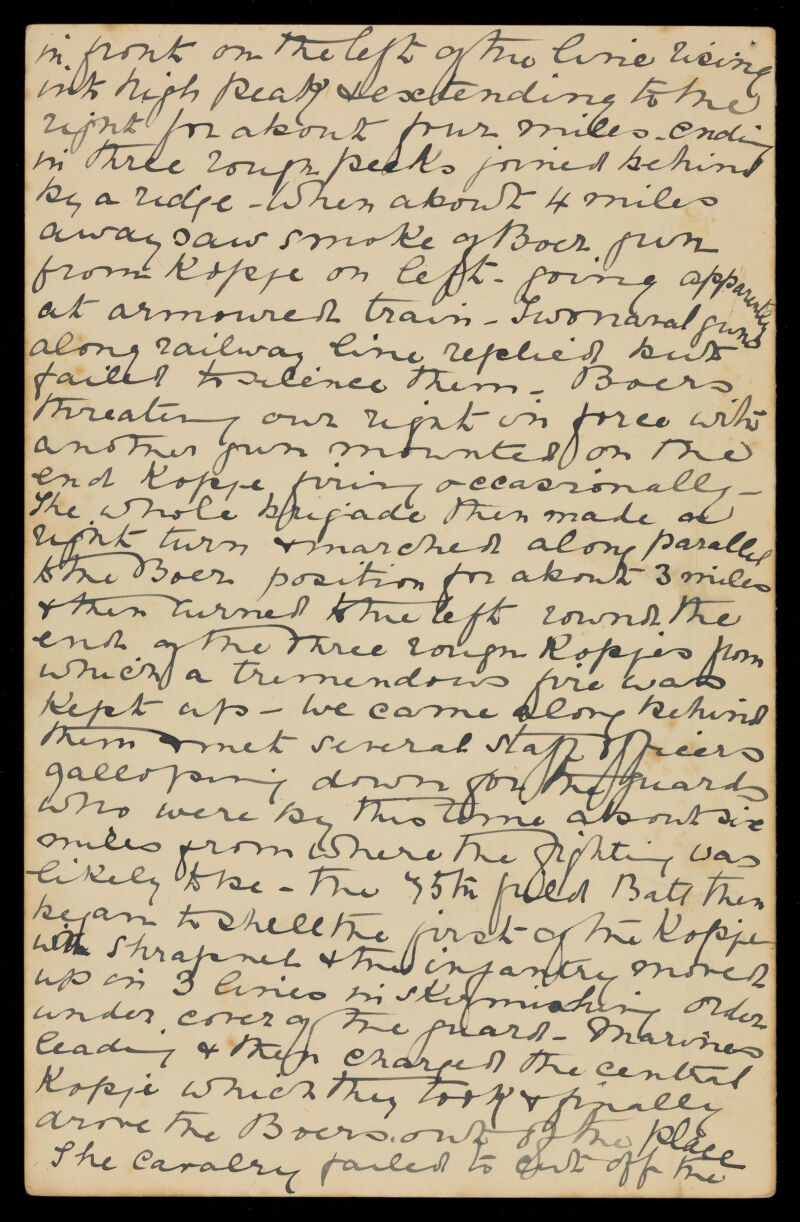 in front on the left of the line rising
into high peak & extending to the
right for about four miles - ending
in three rough peeks joined behind
by a ridge - When about 4 miles
away saw smoke of Boer gun
from Kopje on left - going apparently
at armoured train - Two naval guns
along railway line replied but
failed to silence them - Boers
threatening our right in force with
another gun mounted on the
end Kopje firing occassionally -
The whole brigade then made a
right turn & marched along parallel
to the Boer position for about 3 miles
& then turned to the left round the
end of the three rough Kopjes from
which a tremendous fire was
kept up - We came along behind
them & met several Staff Officers
galloping down for the guards
who were by this time about six
miles from where the fighting was
likely to be - the 75th field Batt then
began to shell the first of the Kopje
with shrapnel & the infantry moved
up in 3 lines in skirmishing order
under cover of the guard - Marines
leading & then charged the central
Kopje which they took & finally
drove the Boers out of the place
The cavalry failed to cut off the